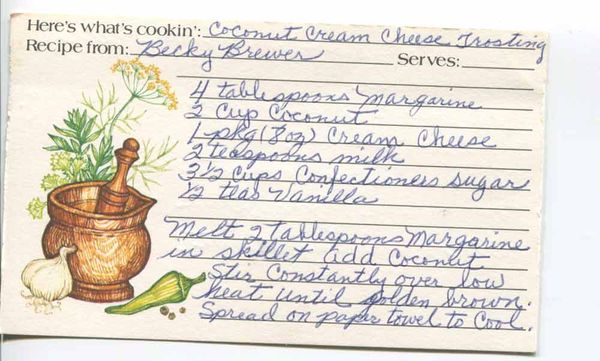 Here's what's cookin': Coconut Cream Cheese Frosting
Recipe from: Becky Brewer Serves:
4 tablespoons Margarine
2 Cup Coconut
1-pkg (8oz) Cream Cheese
2 teaspoons milk
3 1/2 Cups Confectioners sugar
1/2 teas Vanilla
Melt 2 tablespoons Margarine
in skillet add Coconut
Stir Constantly over low
heat until golden brown.
Spread on paper towel to Cool.